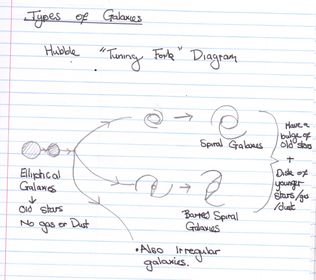 Types of Galaxies
Hubble "Tuning Fork" Diagram
Spiral Galaxies
Have a
bulge of
old stars
+
Disk of
younger
stars/gas
/dust
Elliptical
Galaxies
↓
Old Stars
No gas or Dust
Barred Spiral
Galaxies
• Also Irregular
galaxies.